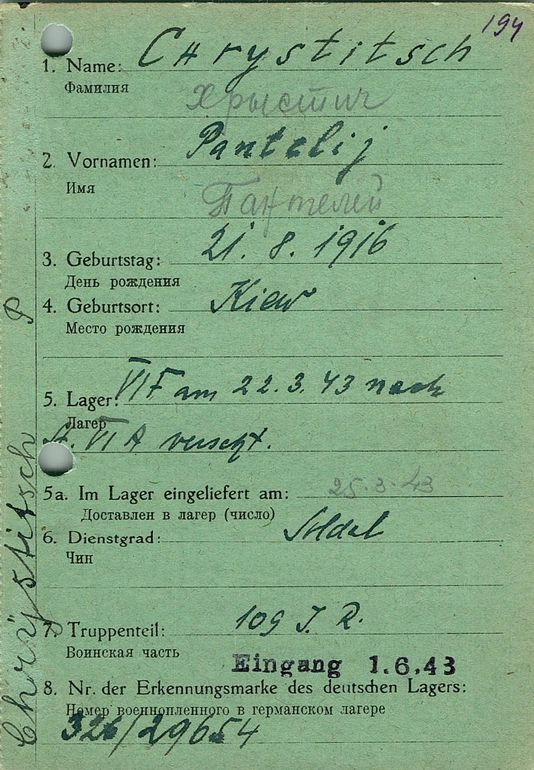 194
1. Name: Chrystitsch
Фамилия
Хрыстич
2. Vornamen: Pantelij
Имя
Пантелей
3. Geburtstag: 21. 8. 1916
День рождения
4. Geburtsort: Kiew
Место рождения
5. Lager: VI F am 22. 3. 43 nach
Лагер
St. VI A versetzt.
5a. Im Lager eingeliefert am: 25. 3. 43
Доставлен в лагер (число)
6. Dienstgrad: Soldat
Чин
7. Truppenteil: 109 I. R.
Воинская часть
Eingang 1.6.43
8. Nr. der Erkennungsmarke des deutschen Lagers:
Номер военнопленного в германском лагере
326/29654
Chrystitsch P